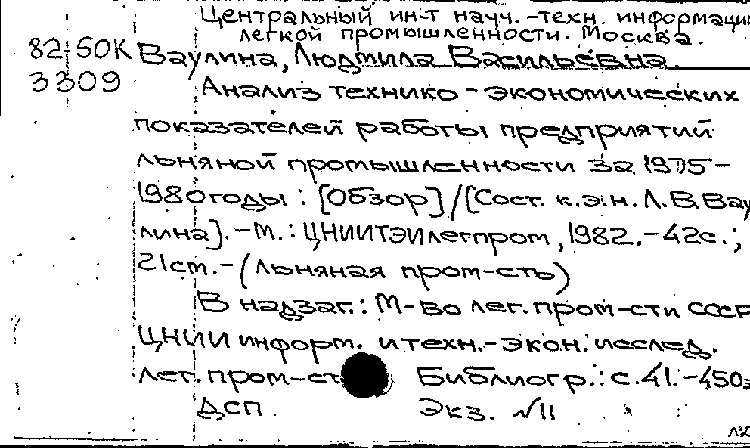 Центральный ин-т науч.-техн. информации
легкой промышленности. Москва.
82-50К Ваулина, Людмила Васильевна.
3309 Анализ технико-экономических
показателей работы предприятий
льняной промышленности за 1975-
1980 годы : [Обзор] / [Сост. к.э.н. Л.В. Вау
лина]. - М. : ЦНИИТЭИлегпром, 1982. - 42с. ;
21см. - (Льняная пром-сть)
В надзаг.: М-во лег. пром-сти СССР
ЦНИИ информ. и техн.-экон. исслед.
лег. пром-ст Библиогр.: с. 41. - 450э
ДСП Экз. №11